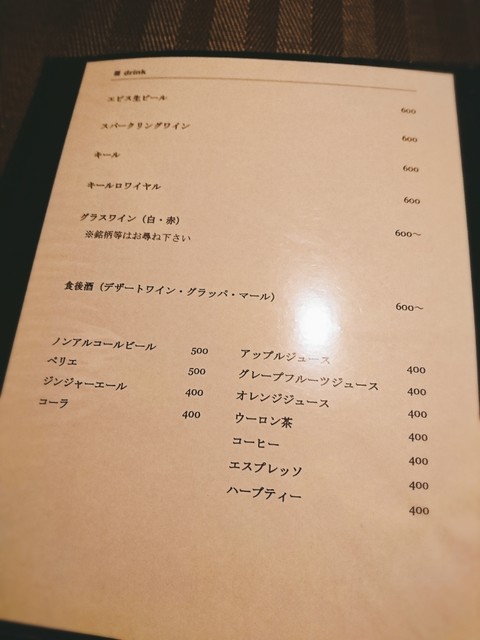 ■ drink
エビス生ビール 600
スパークリングワイン 600
キール 600
キールロワイヤル 600
グラスワイン（白・赤） 600～
※銘柄等はお尋ね下さい
食後酒（デザートワイン・グラッパ・マール） 600～
ノンアルコールビール 500
ペリエ 500
ジンジャーエール 400
コーラ 400
アップルジュース 400
グレープフルーツジュース 400
オレンジジュース 400
ウーロン茶 400
コーヒー 400
エスプレッソ 400
ハーブティー 400